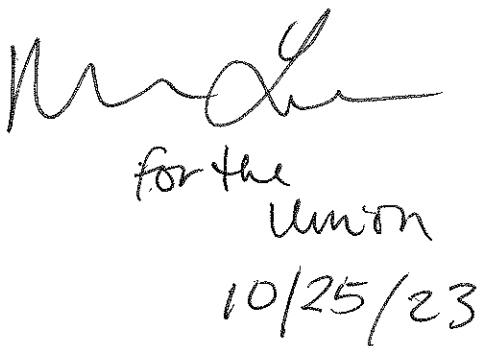 for the
Union
10/25/23